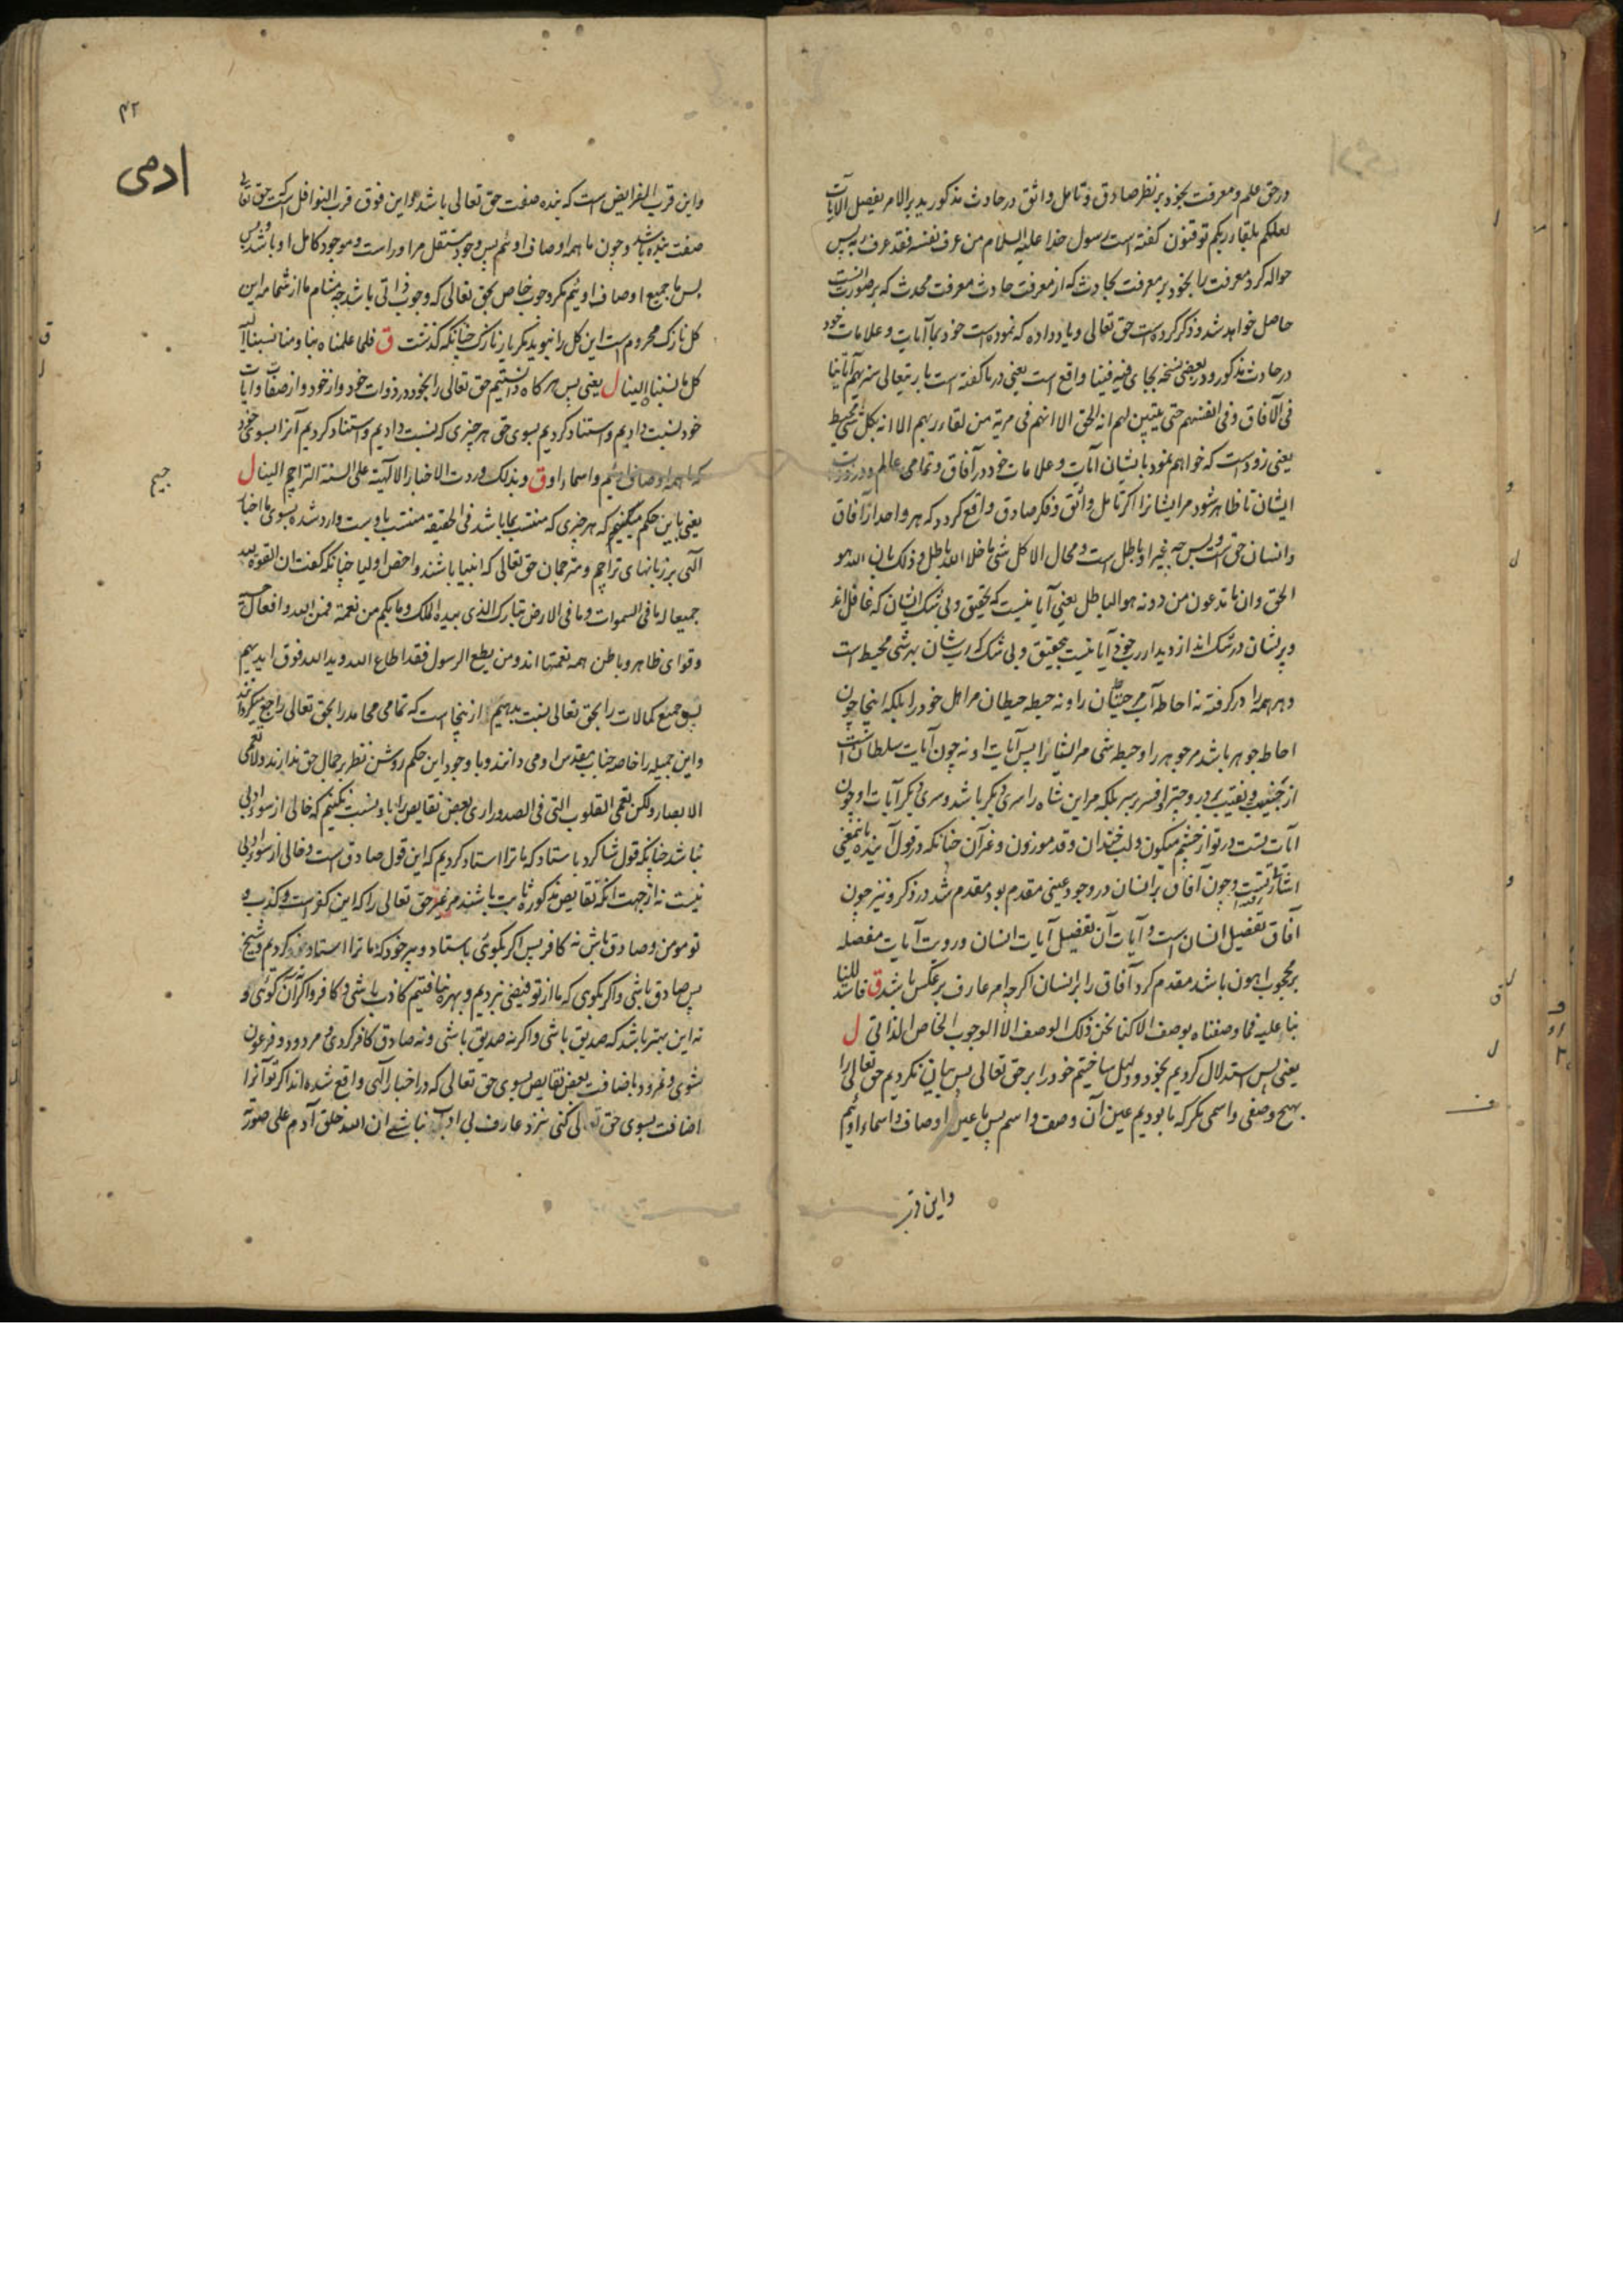 در حق علم و معرفت بخود بر نظر صادق و تامل واثق در حادث مذکور یدبر الامر یفصل الایات
لعلکم بلقاء ربکم توقنون گفته است رسول خدا علیه السلام من عرف نفسه فقد عرف ربه پس
حواله کرد معرفت را بخود بر معرفت بحادث که از معرفت حادث معرفت محدث که بر صورت
حاصل خواهد شد و ذکر کرده است حق تعالی و یاد داده که نموده است خود بما آیات و علامات خود
در حادث مذکور و در بعضی نسخه بجای فیه فینا واقع است یعنی در ما گفته است باریتعالی سنریهم آیاتنا
فی الآفاق و فی انفسهم حتی یتبین لهم انه الحق الا انهم فی مریة من لقاء ربهم الا انه بکل شی محیط
یعنی زودست که خواهم نمود بایشان آیات و علامات خود در آفاق و تمامی عالم و در ذوات
ایشان تا ظاهر شود مر ایشانرا اگر تامل واثق و فکر صادق واقع کردد که هر واحد از آفاق
و انسان حق است و بس چه غیر او باطل است و محال الا کل شی ما خلا الله باطل و ذلک بان الله هو
الحق و ان ما تدعون من دونه هو الباطل یعنی آیا نیست که تحقیق و بی شک ایشان که غافل اند
و پریشان در شک اند از دیدار رب خود آیا نیست بتحقیق و بی شک که رب شان بهر شی محیط است
و هر همه را درگرفته نه احاطه آب حیتان را و نه حیطه حیطان مر اهل خود را بلکه اینجا چون
احاطه جوهر باشد مر جوهر را و حیطه شی مر اشیا را پس آیات او نه چون آیات سلطان است
از و نقیب و بر در و چتر و افسر بر سر بلکه مر این شاه را سری دیگر باشد و سری دیگر آیات او چون
آیات تست در تو از چشم میگون و لب خندان و قد موزون و غیر آن چنانکه در قول آینده باین معنی
اشارتیست و چون آفاق بر انسان در وجود عینی مقدم بود مقدم شد در ذکر و نیز چون
آفاق تفصیل انسان است و آیات آن تفصیل آیات انسان و رویت آیات مفصله
بر محجوب اهون باشد مقدم کرد آفاق را بر انسان اگرچه امر عارف بر عکس باشد ق فاستدللنا
بنا علیه فما وصفناه بوصف الا کنا نحن ذلک الوصف الا الوجوب الخاص الذاتی ل
یعنی پس استدلال کردیم بخود و دلیل ساختیم خود را بر حق تعالی پس بیان نکردیم حق تعالی را
بهیچ وصفی و اسمی مگر که ما بودیم عین آن وصف و اسم پس ما عین اوصاف و اسماء اوئیم
و این قر
۴۲
ادمی
و این قرب الفرایض است که بنده صفت حق تعالی باشد و این فوق قرب النوافل است که حق تعالی
صفت بنده باشد و چون ما همه اوصاف اوئیم پس وجود مستقل مر او راست و موجود کامل او باشد و بس
پس ما جمیع اوصاف اوئیم مگر وجوب خاص بحق تعالی که وجوب ذاتی باشد چه مشام ما از شمامه این
کل نازک محروم است این کل را نبوید مگر یار نازک چنانکه گذشت ق فلما علمناه بنا و منا نسبنا الیه
کل ما نسبناه الینا ل یعنی پس هرگاه دانستیم حق تعالی را بخود در ذوات خود و از خود و از صفات و آیات
خود نسبت دادیم و استناد کردیم بسوی حق هر چیزی که نسبت دادیم و استناد کردیم آنرا بسوی خود
که ما همه اوصاف اوئیم و اسماء او ق و بذلک وردت الاخبار الالهیة علی السنة التراجم الینا ل
جیم
یعنی باین حکم میکنیم که هر چیزی که منتسب بما باشد فی الحقیقة منتسب باوست وارد شده بسوی ما اخبار
الهی بر زبانهای تراجم و مترجمان حق تعالی که انبیا باشند و اخص اولیا چنانکه گفت ان القوة لله
جمیعا له ما فی السموات و ما فی الارض تبارک الذی بیده الملک و ما بکم من نعمة فمن الله و افعال
و قوای ظاهر و باطن همه نعمتها اند و من یطع الرسول فقد اطاع الله و ید الله فوق ایدیهم
پس جمیع کمالات را بحق تعالی نسبت بدهیم از ینجا است که تمامی محامد را بحق تعالی راجع میگردانند
و این جمیله را خاصه جناب مقدس او می دانند و با وجود این حکم روشن نظر بر جمال حق ندارند و لا تعمی
الابصار ولکن تعمی القلوب التی فی الصدور اری بعض نقایص را باو نسبت نکنیم که خالی از سوء ادبی
نباشد چنانکه قول شاگرد باستاد که ما ترا استاد کردیم که این قول صادق است و خالی از سوء ادبی
نیست نه از جهت آنکه نقایص مذکور ثابت باشند مر غیر حق تعالی را که این کفر است و کذب و
تو مومن و صادق باش نه کافر پس اگر بگوئی باستاد و پیر خود که ما ترا استاد کردیم و شیخ
پس صادق باشی و اگر بگوی که ما از تو فیضی نبردیم و بهره نیافتیم کاذب باشی و کافر و اگر آن نگوئی و
نه این بهتر باشد که صدیق باشی و اگر نه صدیق باشی و نه صادق کافر کردی و مردود و فرعون
شوی و نمرود باضافت بعض نقایص بسوی حق تعالی که در اخبار الهی واقع شده اند اگر تو آنرا
اضافت بسوی حق تعالی کنی نزد عارف بی ادب نباشی ان الله خلق آدم علی صورته